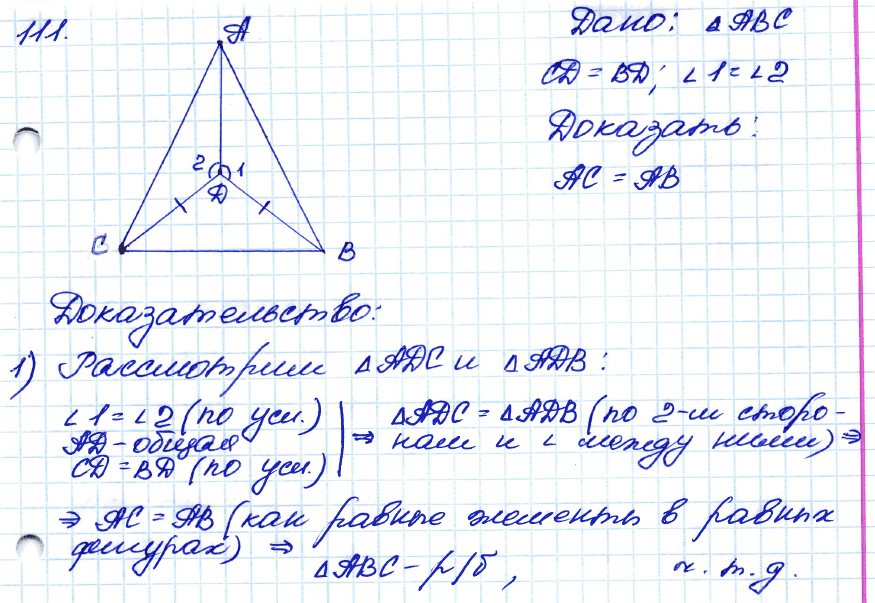 111.
A
2 1
D
C
B
Дано: △ABC
CD = BD; ∠1 = ∠2
Доказать:
AC = AB
Доказательство:
1) Рассмотрим △ADC и △ADB:
∠1 = ∠2 (по усл.)
AD - общая
CD = BD (по усл.)
⇒ △ADC = △ADB (по 2-м сторо-
нам и ∠ между ними) ⇒
⇒ AC = AB (как равные элементы в равных
фигурах) ⇒
△ABC - р/б, ч.т.д.